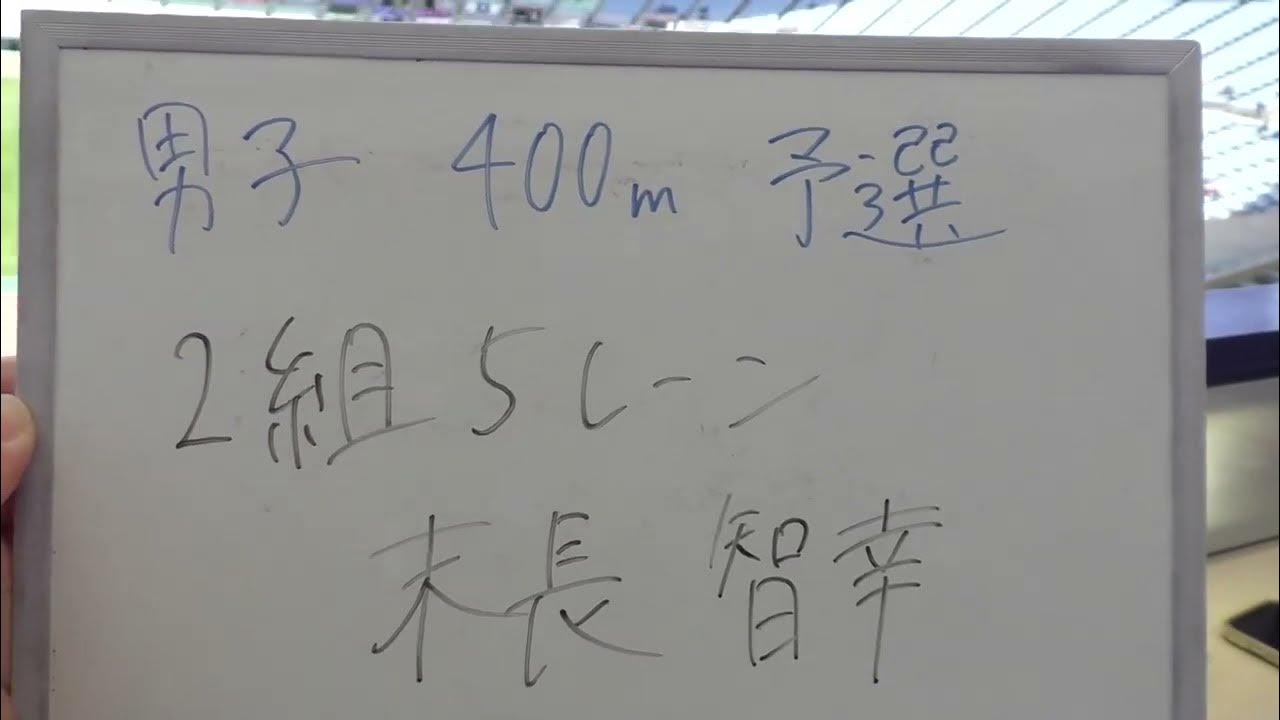 男子 400m 予選
2組 5レーン
末長 智幸